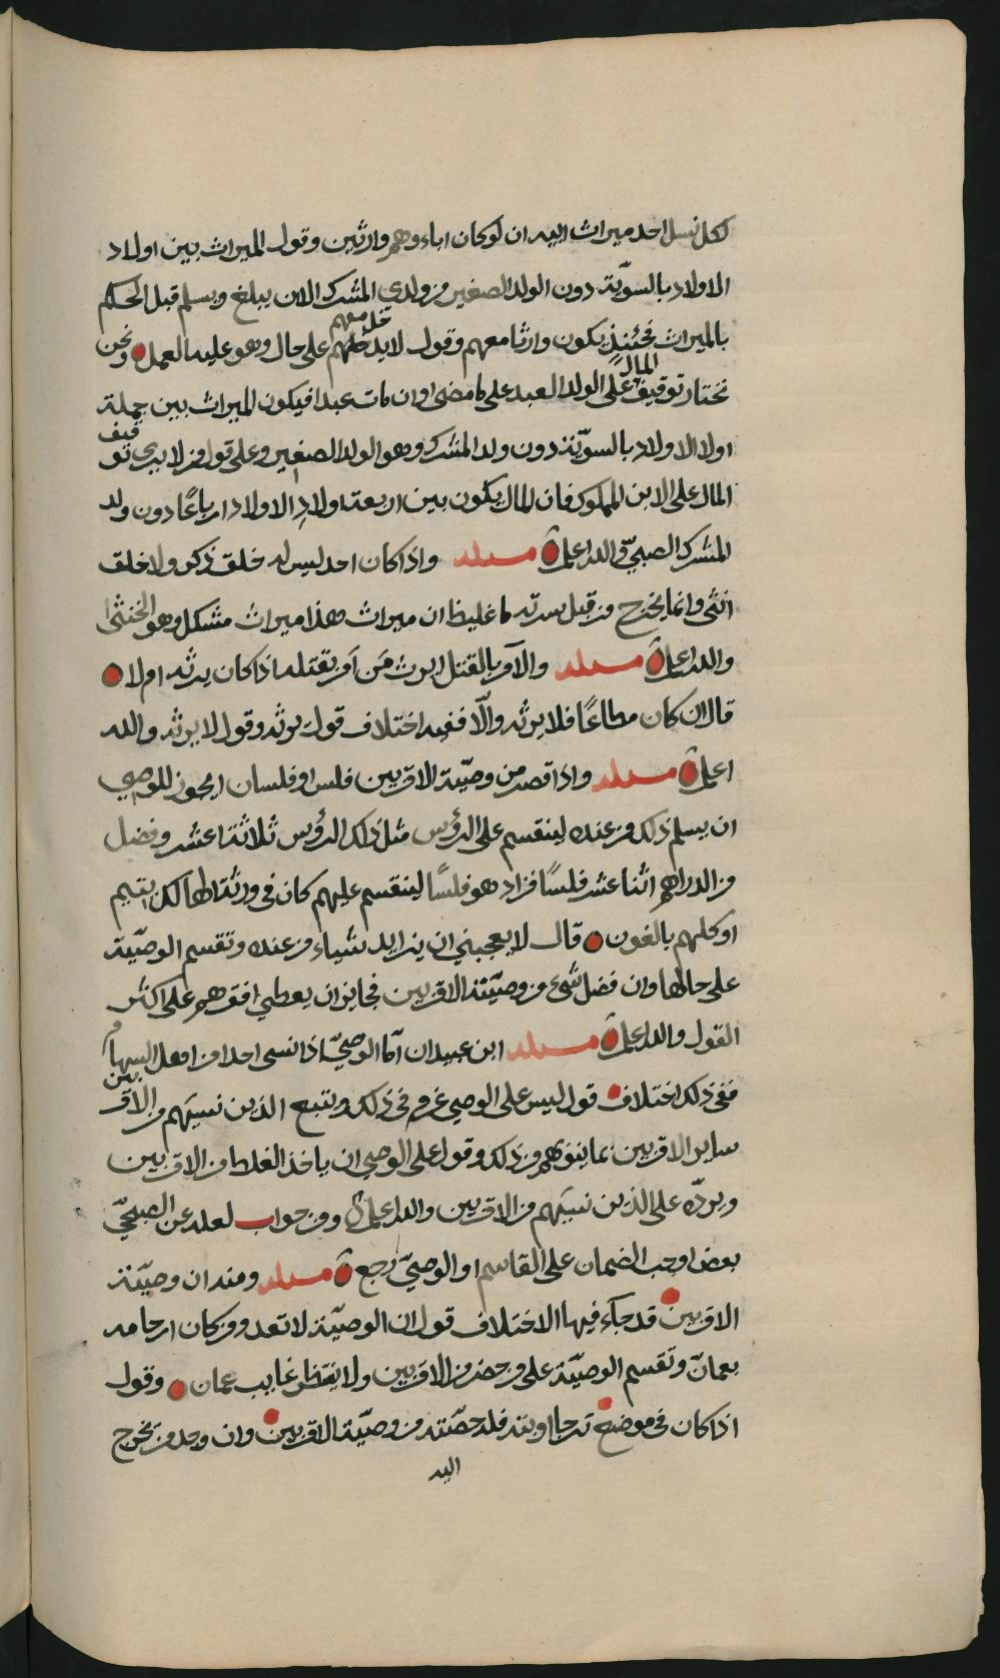 لكل نسل احد ميراث ابيه ان لو كان اباءوهم وارثين وقول الميراث بين اولاد
الاولاد بالسويّة دون الولد الصغير من ولدي المشرك الا ان يبلغ ويسلم قبل الحكم
بالميراث فحئنذ يكون وارثا معهم وقول لا يدخل معهم على حال وهو عليه العمل ونحن
نختار توقيف المال على الولد العبد على ما مضى اوان مات عبدا فيكون الميراث بين جملة
اولاد الاولاد بالسويّة دون ولد المشرك وهو الولد الصغير وعلى قول من لا يرى توقيف
المال على الابن المملوك فان المال يكون بين اربعة اولاد الاولاد ارباعًا دون ولد
المشرك الصبيّ والله اعلم مسئلة واذا كان احد ليس له خلق ذكر ولا خلق
انثى وانما يخرج من قبل سرته ما غليظا ان ميراث هذا ميراث مشكل وهو الخنثى
والله اعلم مسئلة والآمر بالقتل ايرث مَن اَمر بقتله اذا كان يرثه ام لا
قال ان كان مطاعًا فلا يرثه والّا ففيه اختلاف قول يرثه وقول لا يرثه والله
اعلم مسئلة واذا قصر من وصيّة الاقربين فلس او فلسان ايجوز للوصي
ان يسلم ذلك من عنده لينقسم على الرؤس مثل ذلك الرؤس ثلاثة اعشر وفضل
من الدراهم اثنا عشر فلسًا فزاد هو فلسًا لينقسم عليهم كان في ورثة الهالك يتيم
او كلهم بالغون قال لا يعجبني ان يزايد شياء من عنده وتقسم الوصيّة
على حالها وان فضل شيء من وصيّتة الاقربين فجايز ان يعطي افقرهم على اكثر
القول والله اعلم مسئلة ابن عبيدان اما الوصيّ اذا نسى احدا من اهل السهام
ففى ذلك اختلاف قول ليس على الوصي غرم في ذلك ويتبع الذين نسيَهم من الاقربين
ساير الاقربين بما ينوبهم من ذلك وقول على الوصي ان ياخذ الغلط من الاقربين
ويردّه على الذين نسيَهم من الاقربين والله اعلم ومن جواب لعله عن الصبحيّ
بعض اوجب الضمان على القاسم او الوصيّ رجع مسئلة ومنه ان وصيّة
الاقربين قد جآء فيها الاختلاف قول ان الوصيّة لا تعدو من كان ارحامه
بعمان وتقسم الوصيّة على من حضر من الاقربين ولا ينتظر غايب عمان وقول
اذا كان في موضع ترجا اوبته فله حصّته من وصيّة الاقربين وان وجد من يخرج
اليه